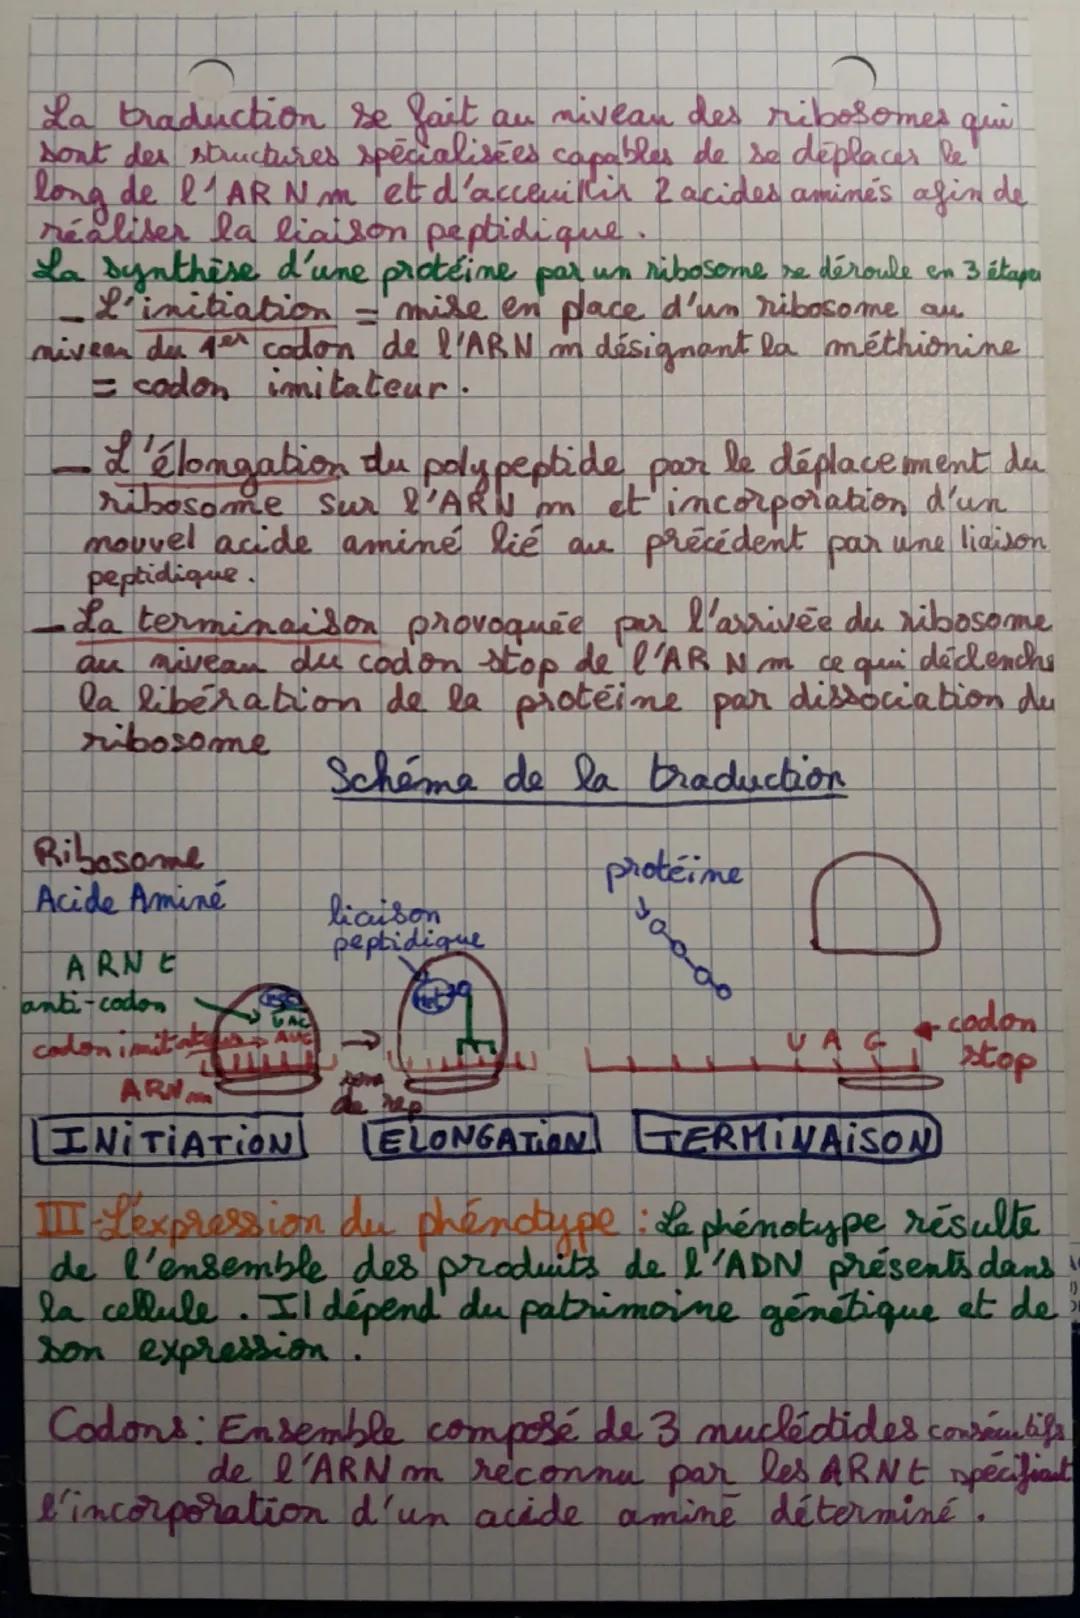 La traduction se fait au niveau des ribosomes qui
sont des structures spécialisées capables de se déplacer le
long de l'ARNm et d'acceuillir 2 acides aminés afin de
réaliser la liaison peptidique.
La synthèse d'une protéine par un ribosome se déroule en 3 étapes
- L'initiation = mise en place d'un ribosome au
niveau du 1er codon de l'ARNm désignant la méthionine
= codon imitateur.
- L'élongation du polypeptide par le déplacement du
ribosome sur l'ARNm et incorporation d'un
nouvel acide aminé lié au précédent par une liaison
peptidique.
- La terminaison provoquée par l'arrivée du ribosome
au niveau du codon stop de l'ARNm ce qui déclenche
la libération de la protéine par dissociation du
ribosome
Schéma de la traduction
Ribosome
Acide Aminé
ARNt
anti-codon
codon imitateur
ARNm
UAC
AUG
liaison
peptidique
Met
de rep
protéine
UAG
codon
stop
INITIATION
ELONGATION
TERMINAISON
III-L'expression du phénotype : Le phénotype résulte
de l'ensemble des produits de l'ADN présents dans
la cellule. Il dépend du patrimoine génétique et de
son expression.
Codons: Ensemble composé de 3 nuclédtides consécutifs
de l'ARNm reconnu par les ARNt spécifiant
l'incorporation d'un acide aminé déterminé.